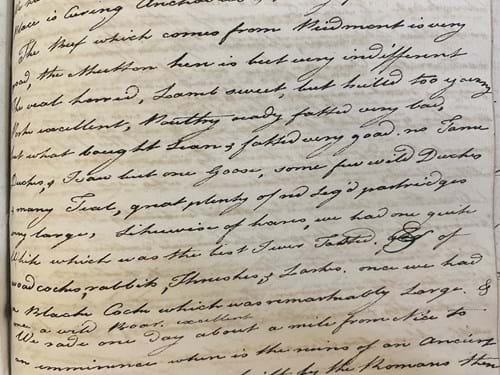 Place is Curing Anchovies
The Beef which comes from Piedmont is very
good, the Mutton hen is but very indifferent
The veal horred, Lamb sweet, but killed too young
Porke excellent, Poultry ready fatted very bad,
but what bought Lean & fatted very good. no Tame
Duckes, & I saw but one Goose, some few wild Duckes
& many Teal, great plenty of red Leg'd partridges
very large, Likewise of hares, we had one quite
White which was the best I ever Tasted. of
woodcockes, rabbits, Thrushes, & Larkes. once we had
a Black Cock which was remarkably Large. &
once a wild Boar. excellent
We rade one day about a mile from Nice to
an imminence wher is the ruins of an Ancient
built by the Romans then